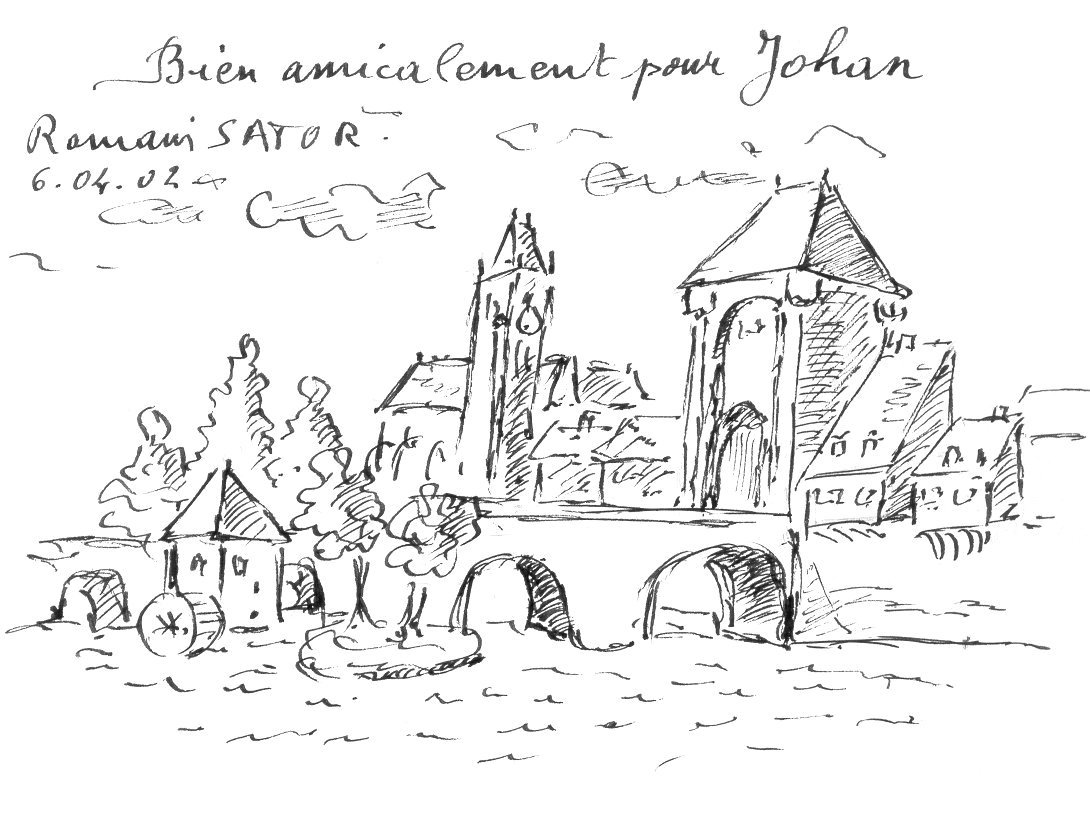 Bien amicalement pour Johan
Romain SATOR
6.04.02